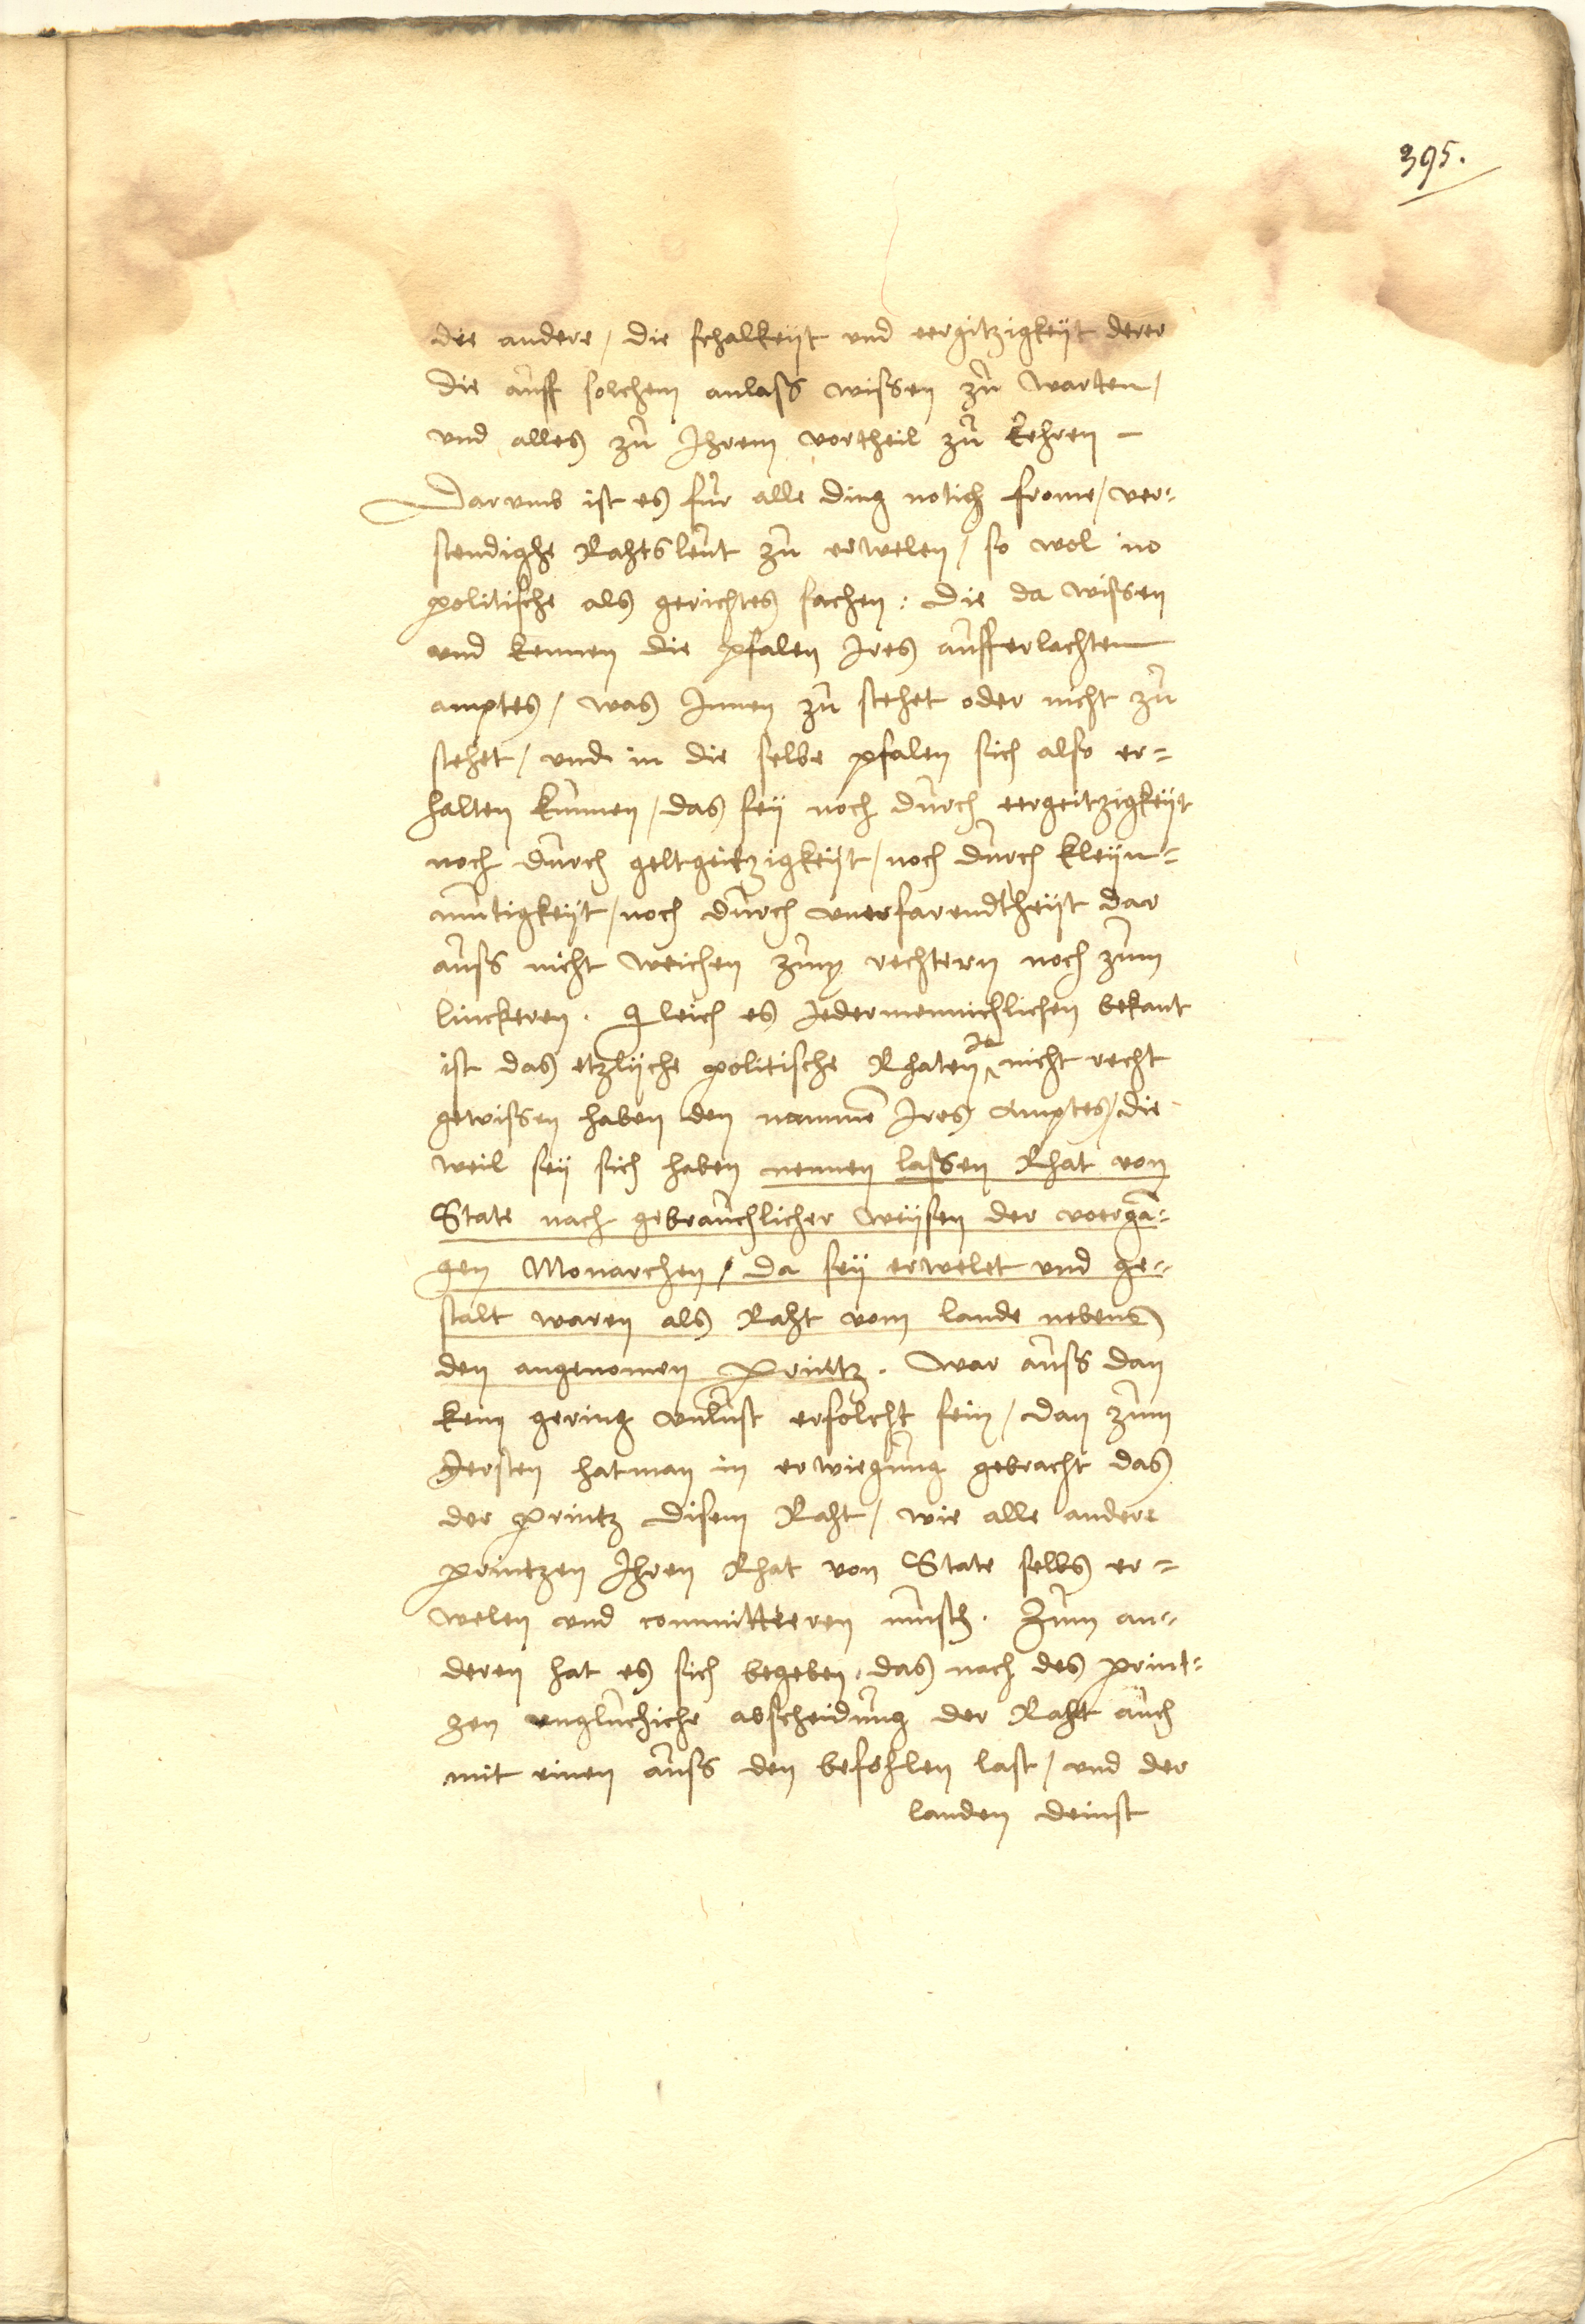 395.
die andere / die schalkeyt und eergitzigkeyt derer
die auff solchem anlass wissen zu warten /
und alles zu Ihrem vortheil zu kehren –
Darumb ist es fur alle ding notich frome / ver=
stendighe Rahtsleut zu erwelen / so wol in
politische als gerichtes sachen : die da wissen
und kennen die pfalen Ires aufferlachten
amptes / was Innen zu stehet oder nicht zu
stehet / und in die selbe pfalen sich also er=
halten kunnen / das sey noch durch eergeitzigkeyt
noch durch geltgeitzigkeyt / noch durch kleyn=
mutigkeyt / noch durch unerfarendtheyt dar
auss nicht weichen zum rechteren noch zum
linckeren . Gleich es Jedermennichlichen bekant
ist das etzlyche politische Rhaten Ja nicht recht
gewissen haben den namme Ires Amptes / die
weil sey sich haben nennen lassen Rhat von
State nach gebrauchlicher weysen der voerga=
gen Monarchen / da sey erwelet und ge=
stalt waren als Raht vom lande nebens
den angenomen printz . war auss dan
kein gering unlust erfolcht sein / dan zum
Jersten hat man in erwiegung gebracht das
der printz disem Raht / wie alle andere
printzen Ihren Rhat von State selbs er=
welen und committeeren musth . Zum an=
deren hat es sich begeben , das nach des print=
zen ungluchiche abscheidung der Raht auch
mit einen auss den befohlen last / und der
landen deinst